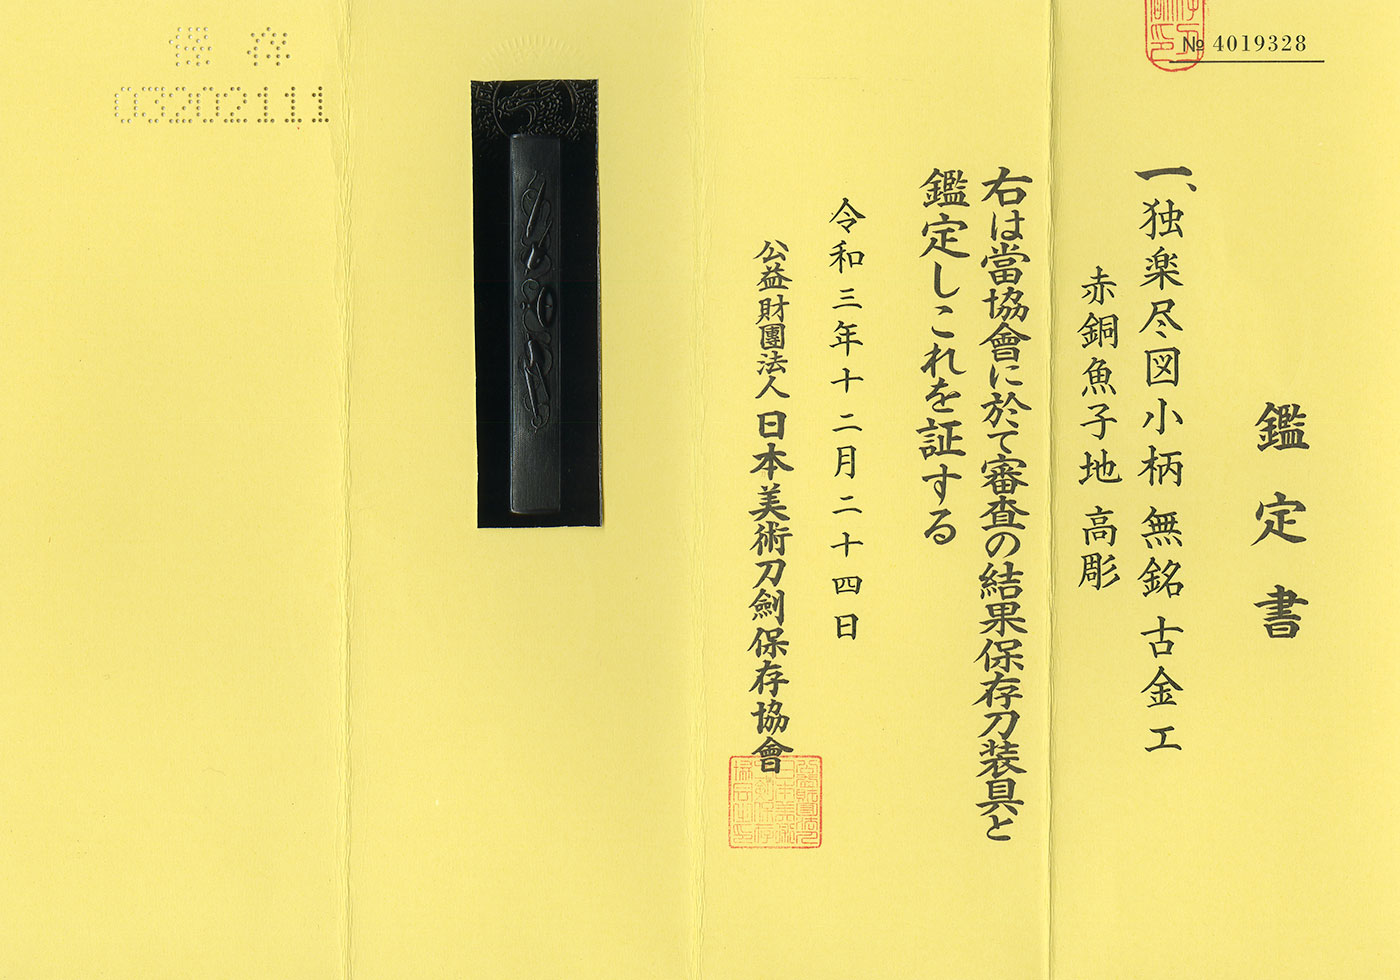 № 4019328
鑑定書
一、独楽尽図小柄 無銘 古金工
赤銅魚子地 高彫
右は當協會に於て審査の結果保存刀装具と
鑑定しこれを証する
令和三年十二月二十四日
公益財團法人 日本美術刀劍保存協會
保存
03202111